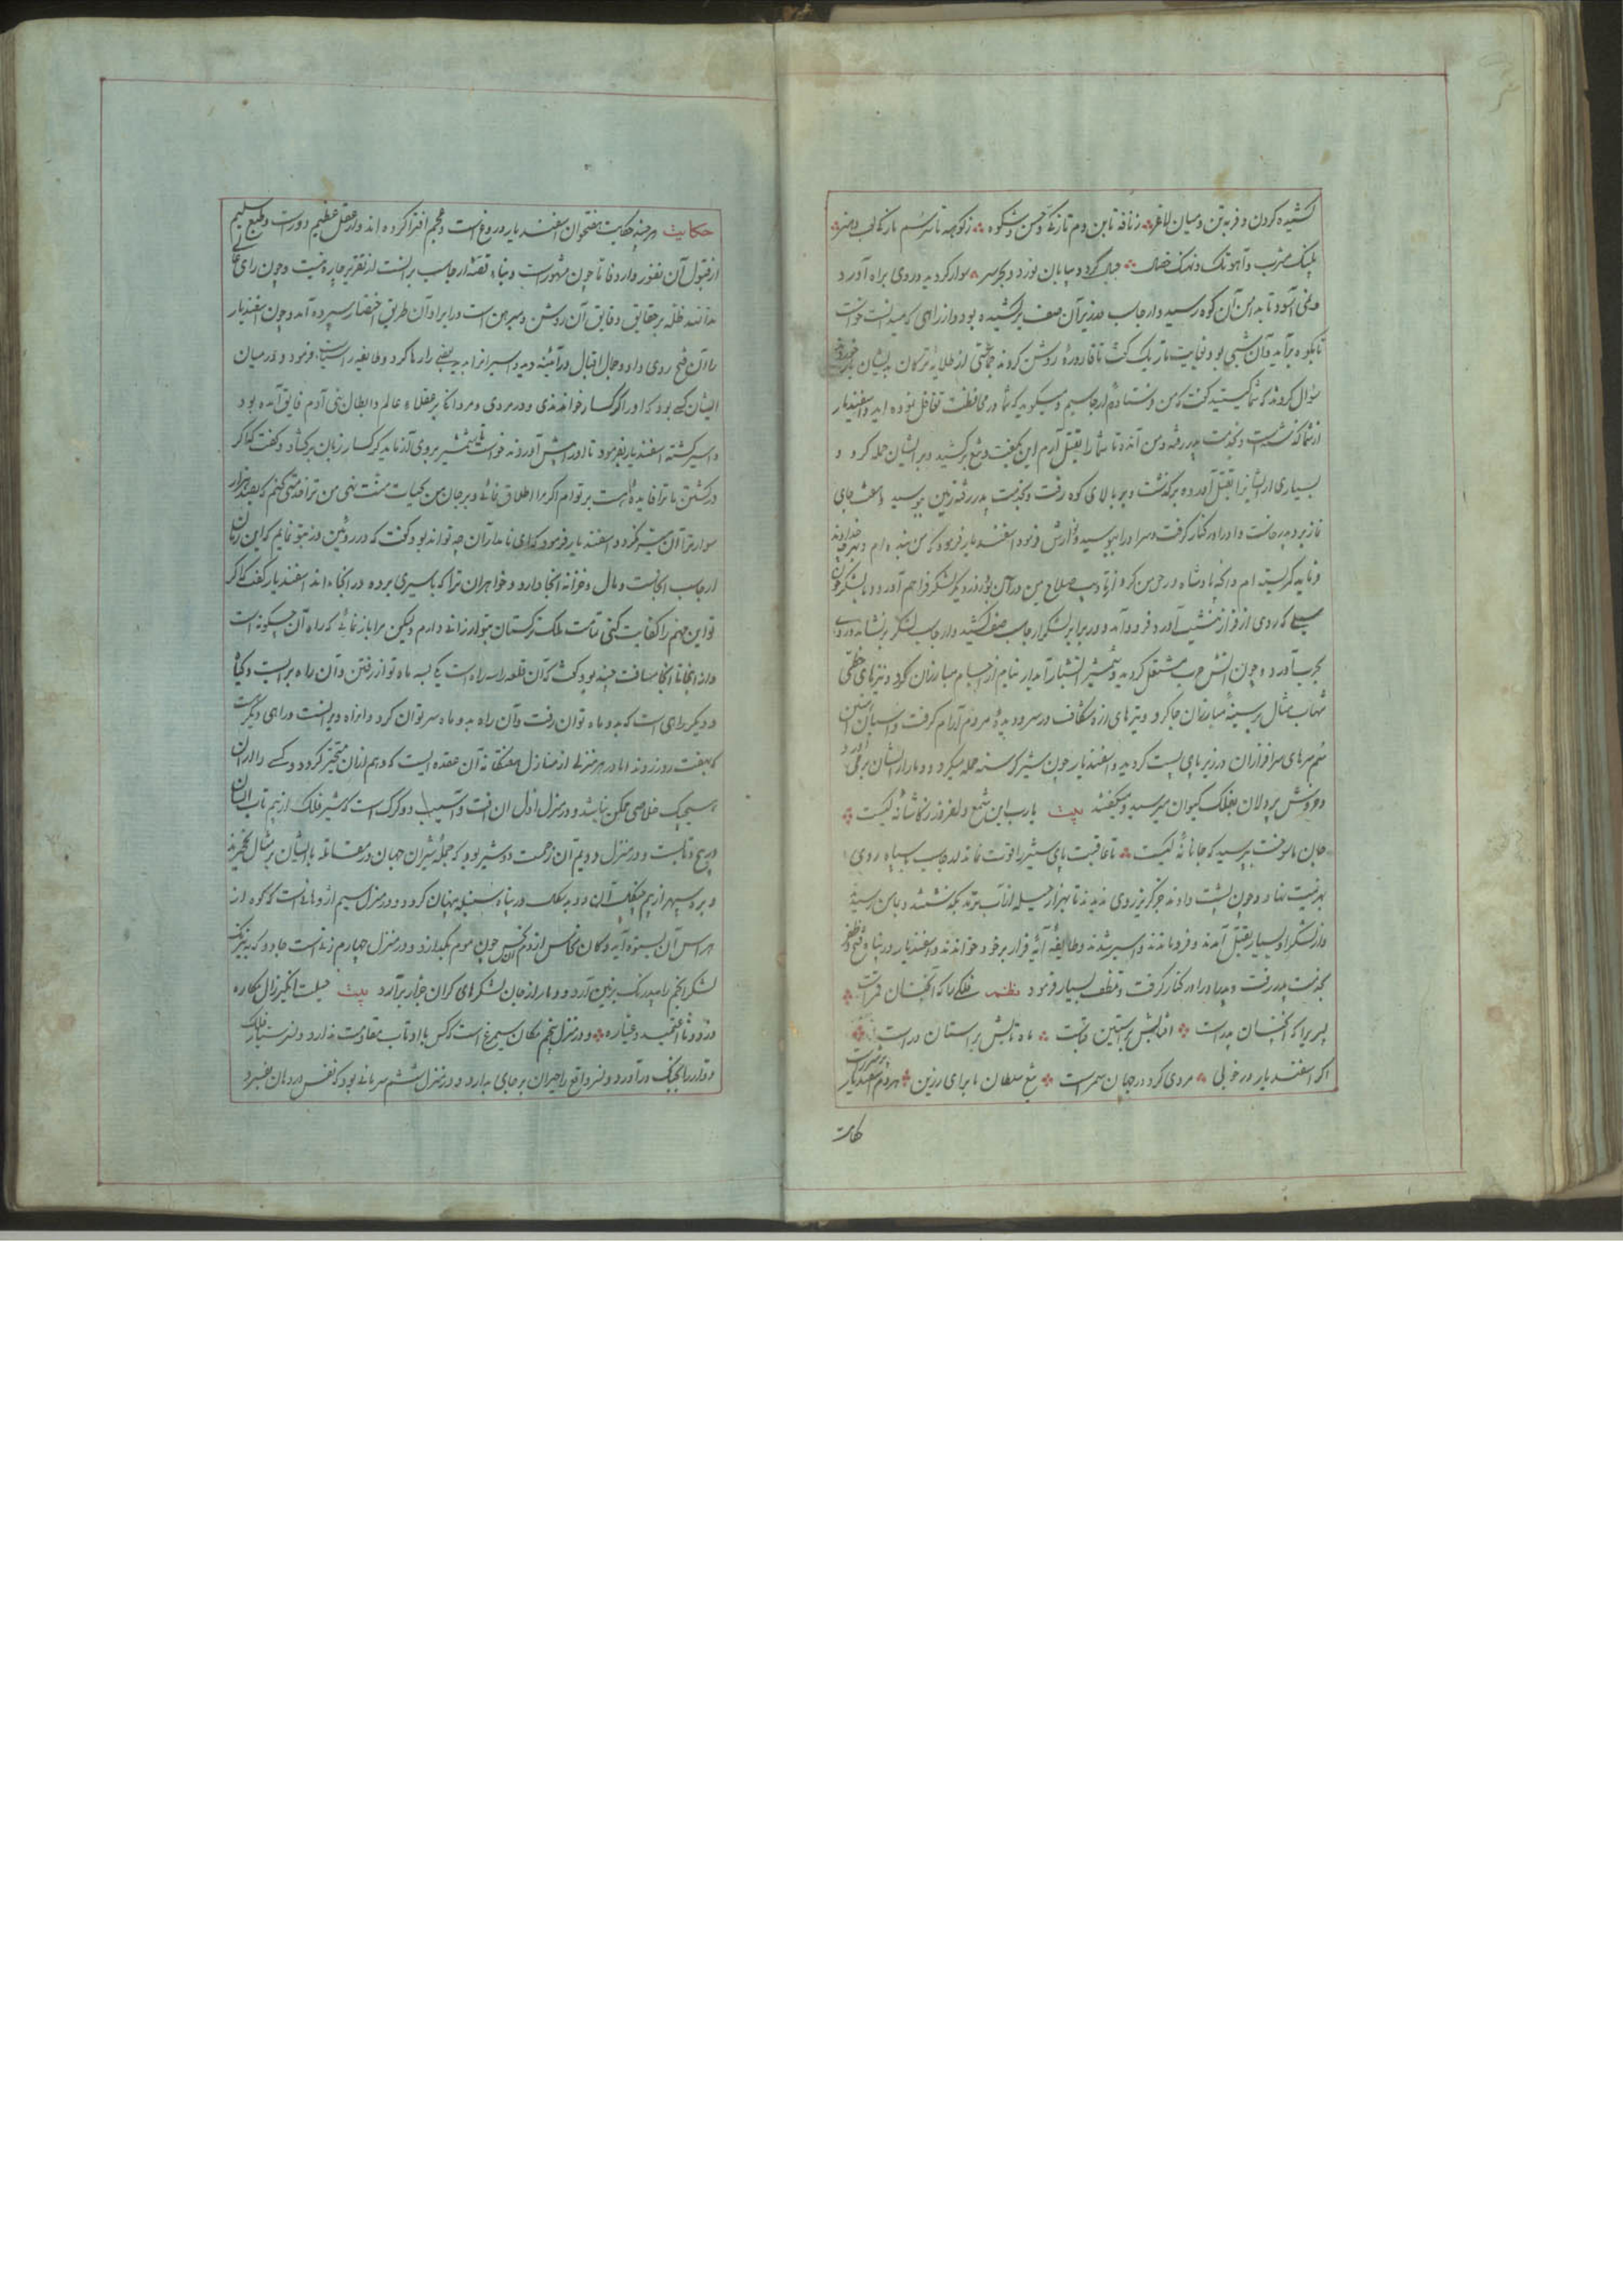 کشیده کردن و فربه تن و میان لاغر زنافه تا بن دم تازیکز حسن و شکوه زکوهه تا
پلنک مشرب و آهو تک و نهنک خصال جبال کرد و بیابان نورد و بحر سر سوار کردید و روی براه آورد
و نمی آسود تا بدامن آن کوه رسید و ارجاسب در زیر آن صف برکشیده بود و از راهی که میدانست خواست
تا بکوه برآید و آن شبی بود بغایت تاریک کشت تا قاروره روشن کردند جماعتی از طلایه ترکان بدیشان
سؤال کردند که شما کیستید کفت که من فرستادهٔ ارجاسبم و میکوید که شما در محافظت تغافل نموده اید و اسفندیار
از شما کذشت و بخدمت پدر رفته و من آمده تا شما را بقتل آرم این بگفت و تیغ برکشید و بر ایشان حمله کرد و
بسیاری از ایشانرا بقتل آورده برکذشت و بر بالای کوه رفت و بخدمت پدر رفته زمین ببوسید
برخاست و او را در کنار کرفت و سر او را ببوسید و نوازش فرمود اسفندیار فرمود که من بنده ام
کمر بسته ام و انچه پادشاه در حق من کرد از تادیب صلاح من در آن بود روز دیکر لشکر فراهم آورد و با لشکر چون
سیلی که روی از فراز بنشیب آورد فرود آمد و در برابر لشکر ارجاسب صف کشید و ارجاسب لشکر برنشاند و روی
بحرب آورد و چون آتش حرب مشتعل کردید و شمشیر آتشبار آبدار نیام از اجسام مبارزان کرد و نیزهای خطی
شهاب مثال بر سینهٔ مبارزان جا کرد و تیرهای زره شکاف در سر و دیدهٔ مردم آرام کرفت و اسبان آهنین
سم سرهای سرافرازان در زیر پای پست کردید و اسفندیار چون شیر کرسنه حمله میکرد و دمار از ایشان بر می آورد
و خروش پردلان بفلک کیوان میرسید و میکفتند بیت یا رب این شمع دلفروز ز کاشانهٔ کیست
جان ما سوخت بپرسید که جانانهٔ کیست تا عاقبت پای ستیز را قوت نماند ارجاسب سیاه روی
بهزیمت نهاد و چون پشت دادند جز کریز روی ندیدند تا بهزار حیله از آب ترمذ بکذشتند و بمامن رسیدند
و از لشکر او بسیار بقتل آمدند و فرو ماندند و اسیر شدند و طایفه آیهٔ فرار بر خود خواندند و اسفندیار در پناه فتح و ظفر
بخدمت پدر رفت و پدر او را در کنار کرفت و تلطف بسیار فرمود نظم فلکی را که آنچنان قمر است
پسریرا که آنچنان پدر است آفتابیش بر آستین قباست ماهتابیش بر آستان در است
اکر اسفندیار در خوبی مردی کرد در جهان سمر است تیغ سلطان ما برای رزین هر دم اسفندیار
حکایت
حکایت هرچند حکایت هفتخوان اسفندیار دروغ است و عجم افترا کرده اند و از عقل عظیم دور است و طبع سلیم
از قبول آن نفور دارد فاما چون مشهور است و بناء قصهٔ ارجاسب بر آنست از تقریر چاره نیست و چون رای
خدانند ظله بر حقایق و دقایق آن روشن و مبرهن است در ایراد آن طریق اختصار سپرده آمد و چون اسفندیار
را آن فتح روی داد و جمال اقبال در آئینه دید و اسیرانرا بدید بعضی را رها کرد و طایفه را سیاست فرمود و در میان
ایشان کسی بود که او را کرکسار خواندندی و در مردی و مردانکی بر عقلاء عالم و ابطال بنی آدم فایق آمده بود
و اسیر کشته اسفندیار بفرمود تا او را پیش آوردند خواست تا شمشیر بر وی آزماید کرکسار زبان برکشاد و کفت که اکر
در کشتن ما ترا فایده ایست بر توام اکر مرا اطلاق نمائی و بر جان من بحیات منت نهی من ترا خدمتی کنم که بصد هزار
سوار ترا آن میسر نکردد اسفندیار فرمود که ای نامدار آن چه تواند بود کفت که در روئین دز بتو نمایم که این زمان
ارجاسب آنجاست و مال و خزانه آنجا دارد و خواهران ترا که باسیری برده در آنجا مانده اند اسفندیار کفت که اکر
تو این مهم را کفایت کنی تمامت ملک ترکستان بتو ارزانی دارم ولیکن مرا باز نمائی که راه آن چکونه است
و از اینجا تا آنجا مسافت چند بود کفت که آن قلعه را سه راه است یکی بسه ماه توان رفتن و آن راه پر آب و کیا
و دیکر راهی است که بدو ماه توان رفت و آن راه بدو ماه بسر توان کرد و آن راه ویرانست و راهی دیکر است
که بهفت روز روند اما در هر منزلی از منازل هفتکانه آن عقده ایست که وهم از آن متحیر کردد و کسی را از آن
بهیچیک خلاصی ممکن نباشد و در منزل اول آن آفت و آسیب دو کرک است که شیر فلک از بیم ناب ایشان
در پیچ و تابست و در منزل دویم آن زحمت دو شیر بود که جملهٔ شیران جهان در مقابله با ایشان بر مثال نخجیرند
و بره سپهر از بیم چنکل آن دو در پناه سنبله پنهان کردد و در منزل سیم اژدهائیست که کوه از
هراس آن بستوه آید و کان نحاس از دم آن چون موم بکدازد و در منزل چهارم زنیست جادو که بنیرنک
لشکر انجم را بیدرنک بزمین آرد و دمار از جان لشکرهای کران جرار برآرد بیت حیلت انگیز زال مکاره
و در منزل پنجم مکان سیمرغ است که کس با او تاب مقاومت ندارد و نسر طایر فلک
دوار را بچنک درآورد و نسر واقع را حیران بر جای بدارد و در منزل ششم سرمائی بود که نفس در دهان بفسرد